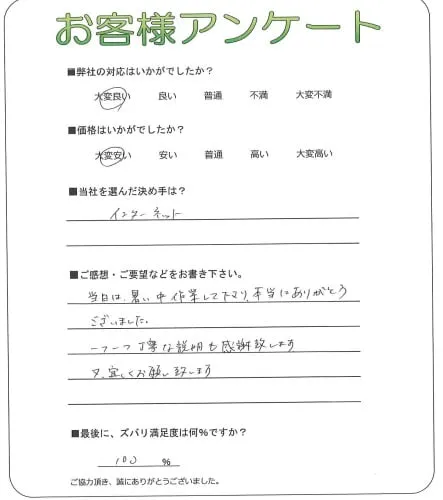 お客様アンケート
■弊社の対応はいかがでしたか？
大変良い 良い 普通 不満 大変不満
■価格はいかがでしたか？
大変安い 安い 普通 高い 大変高い
■当社を選んだ決め手は？
インターネット
■ご感想・ご要望などをお書き下さい。
当日は、暑い中作業して下さり、本当にありがとう
ございました。
一つ一つ丁寧な説明も感謝致します
又、宜しくお願い致します
■最後に、ズバリ満足度は何％ですか？
100 %
ご協力頂き、誠にありがとうございました。